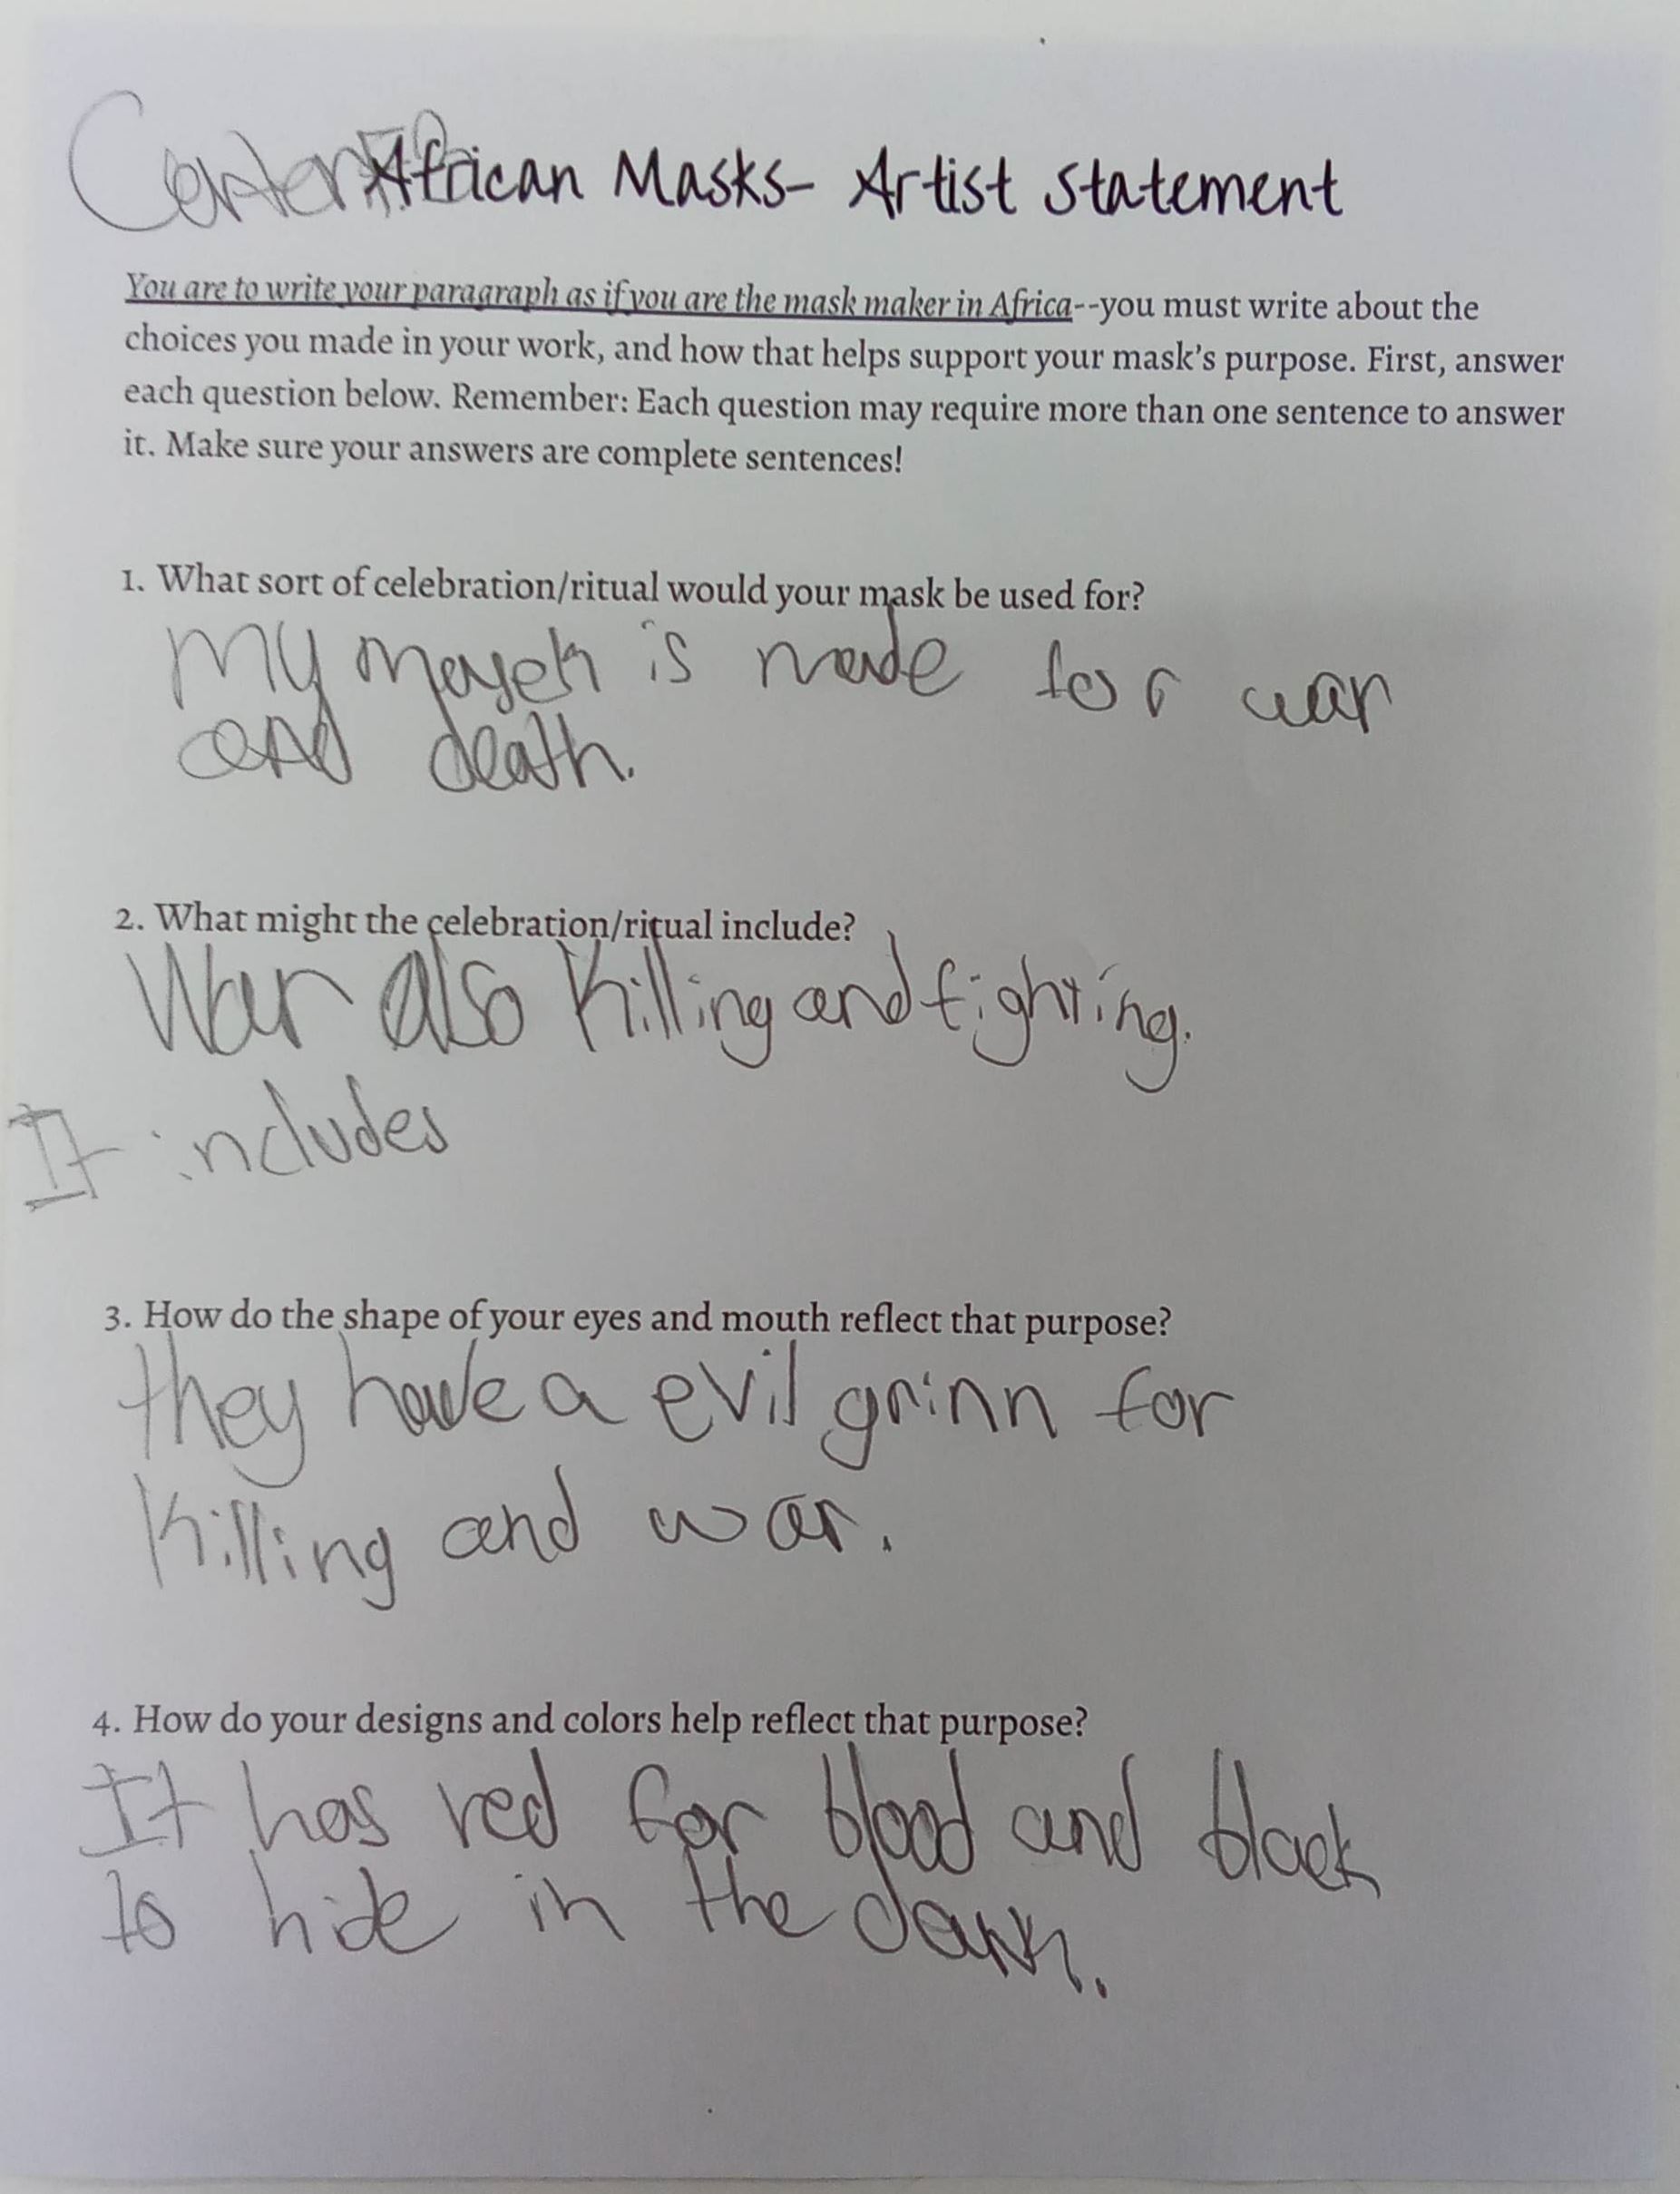 African Masks- Artist Statement
You are to write your paragraph as if you are the mask maker in Africa--you must write about the
choices you made in your work, and how that helps support your mask's purpose. First, answer
each question below. Remember: Each question may require more than one sentence to answer
it. Make sure your answers are complete sentences!
1. What sort of celebration/ritual would your mask be used for?
My is made for war
and death.
2. What might the celebration/ritual include?
War also killing and fighting.
It includes
3. How do the shape of your eyes and mouth reflect that purpose?
they have a evil grinn for
killing and war.
4. How do your designs and colors help reflect that purpose?
It has red for blood and black
to hide in the dark.